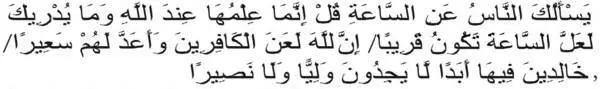 يَسْأَلُكَ النَّاسُ عَنِ السَّاعَةِ قُلْ إِنَّمَا عِلْمُهَا عِندَ اللَّهِ وَمَا يُدْرِيكَ
لَعَلَّ السَّاعَةَ تَكُونُ قَرِيبًا/ إِنَّ للَّهَ لَعَنَ الْكَافِرِينَ وَأَعَدَّ لَهُمْ سَعِيرًا/
, خَالِدِينَ فِيهَا أَبَدًا لَّا يَجِدُونَ وَلِيًّا وَلَا نَصِيرًا